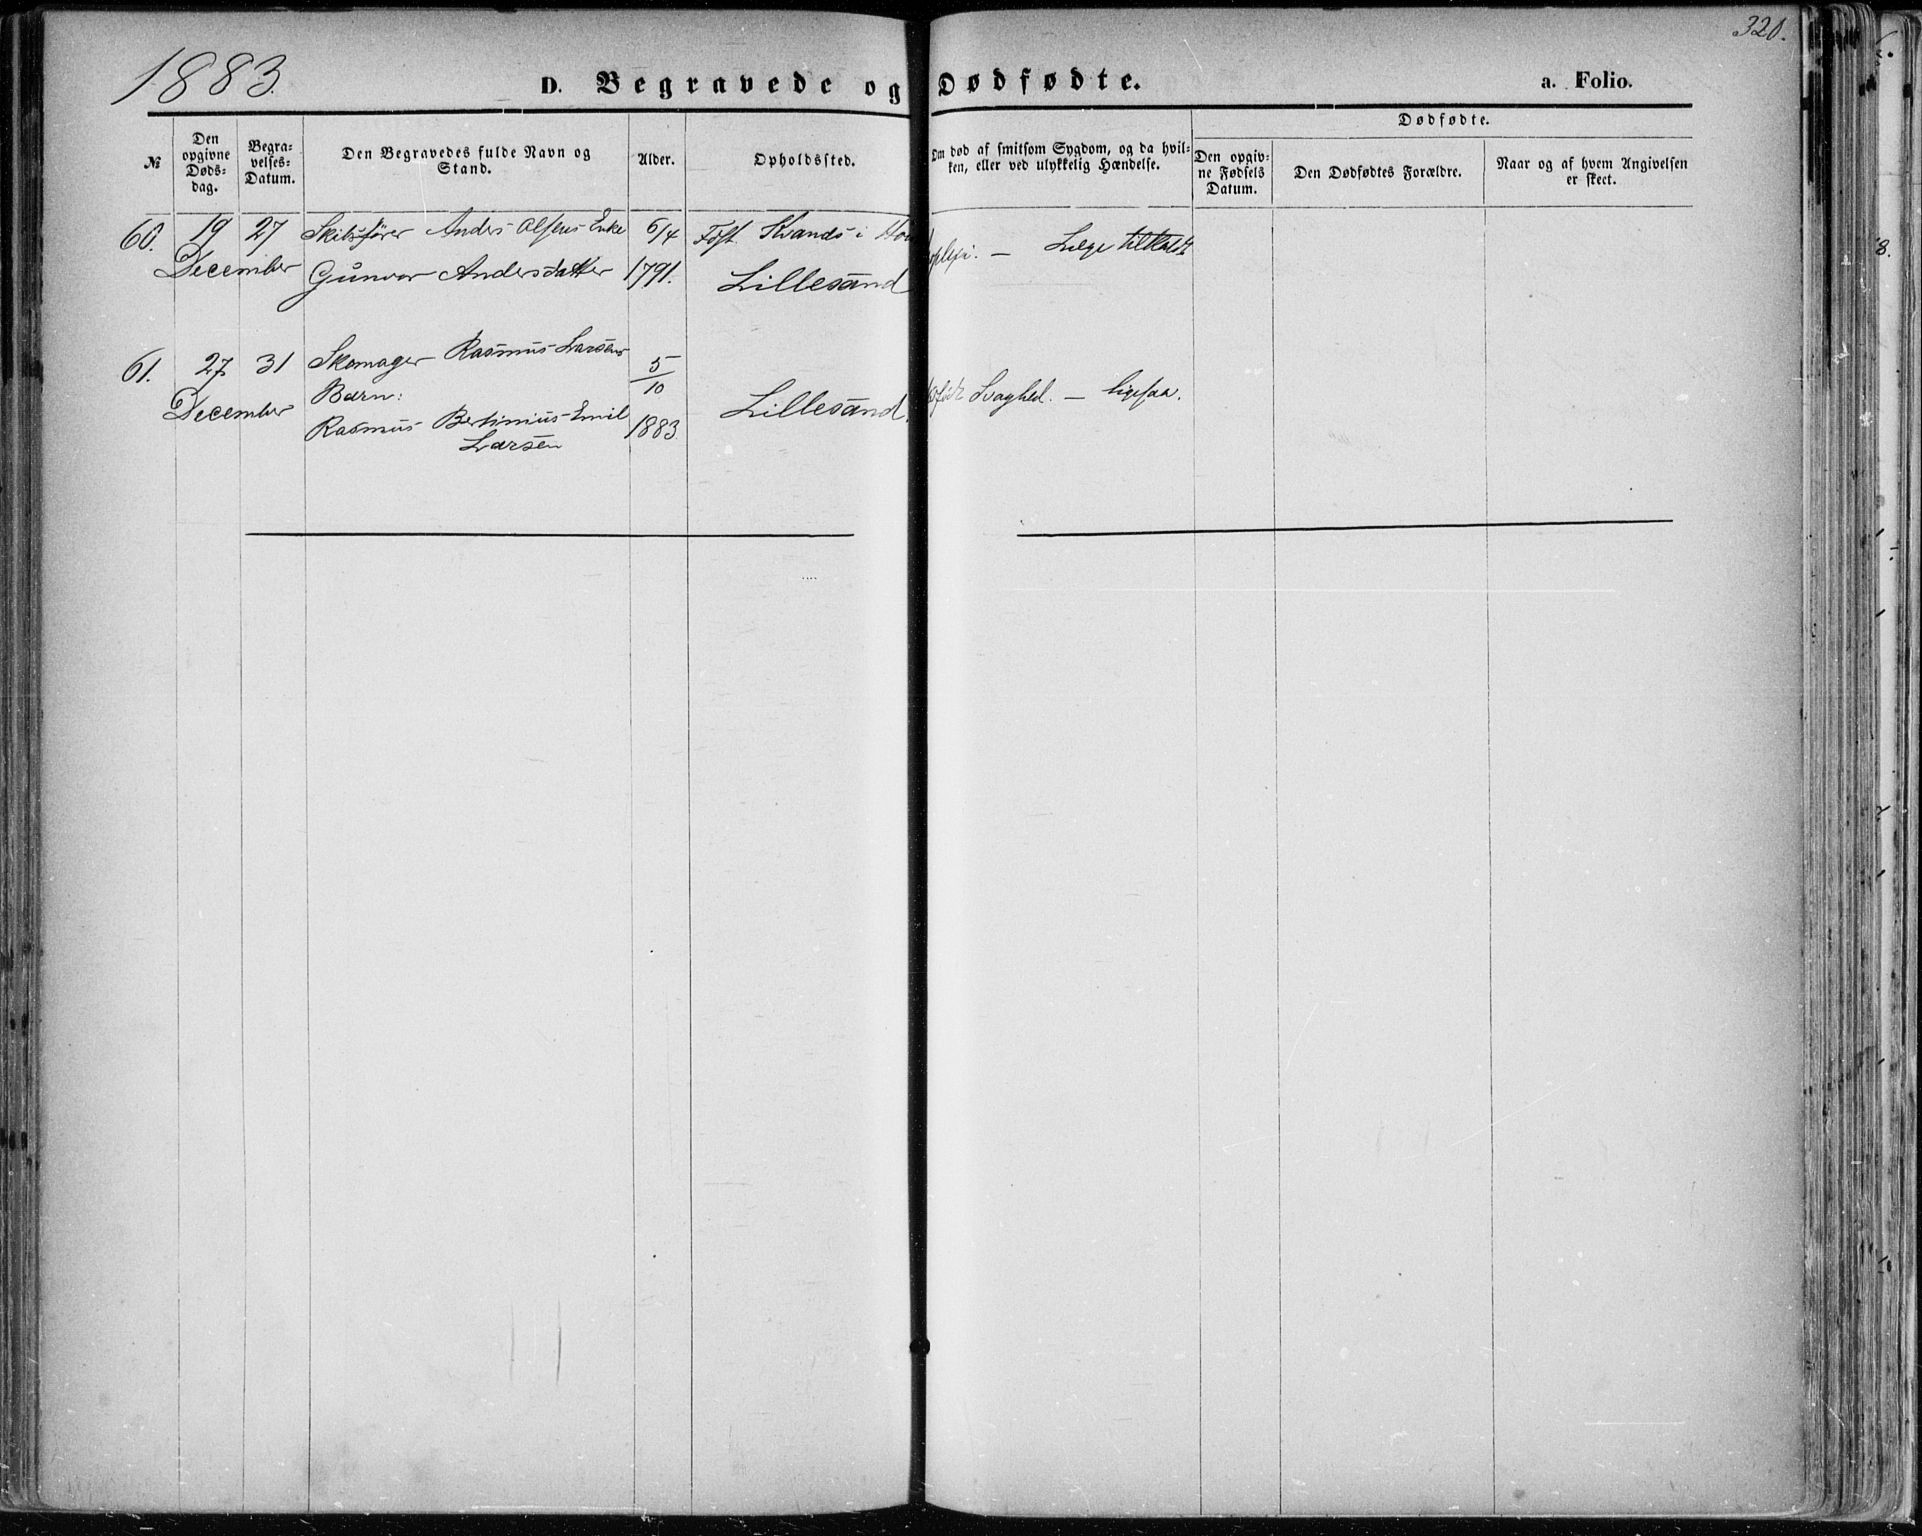 320.
1883.
D. Begravede og Dødfødte.
a. Folio.
№
Den opgivne Døds-dag.
Begra-velses-Datum.
Den Begravedes fulde Navn og Stand.
Alder.
Opholdssted.
Om død af smitsom Sygdom, og da hvil-ken, eller ved ulykkelig Hændelse.
Dødfødte.
Den opgiv-ne Fødsels Datum.
Den Dødfødtes Forældre.
Naar og af hvem Angivelsen er skeet.
60. 19 27 Skibsfører Anders Olsens Enke 6/4 Født Kvands i
plexi. — Læge tilkaldt
December Gunvor Andersdatter 1791. Lillesand
61. 27 31 Skomager Rasmus Larsens 5/10
Barn:
December Lillesand. Svaghed. — ligesaa.
Rasmus Bertinius Emil 1883
Larsen